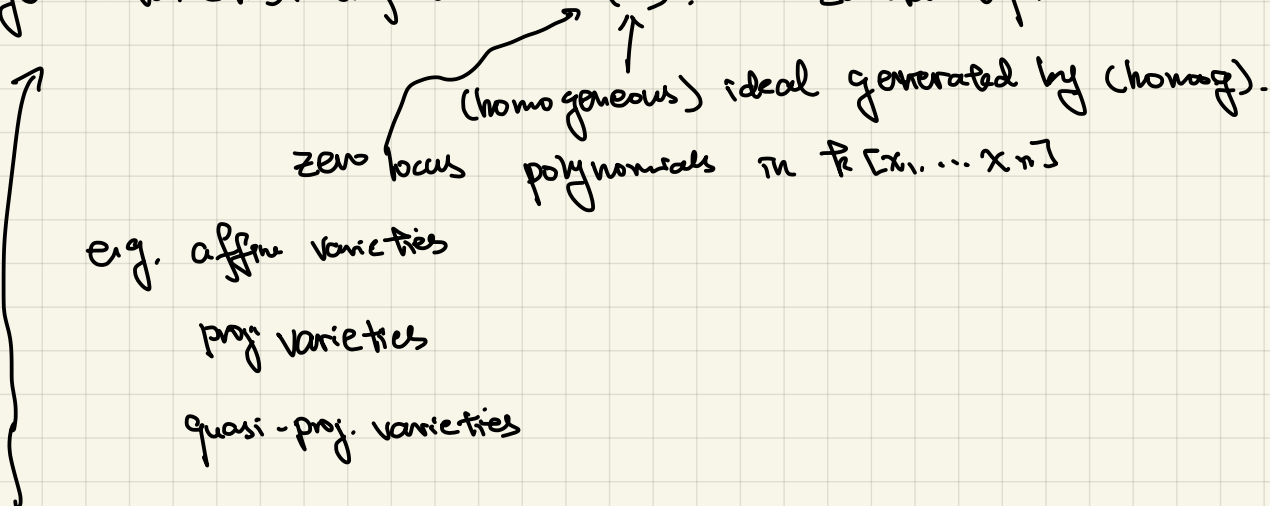 (homogeneous) ideal generated by (homog).
zero locus polynomials in k[x1, ... xn]
e.g. affine varieties
proj varieties
quasi-proj. varieties